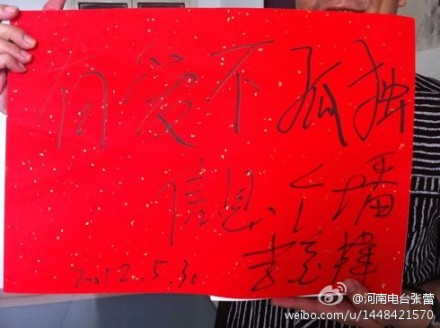 有爱不孤独
信息个墙
2012.5.30
@河南电台张蕾
weibo.com/u/1448421570